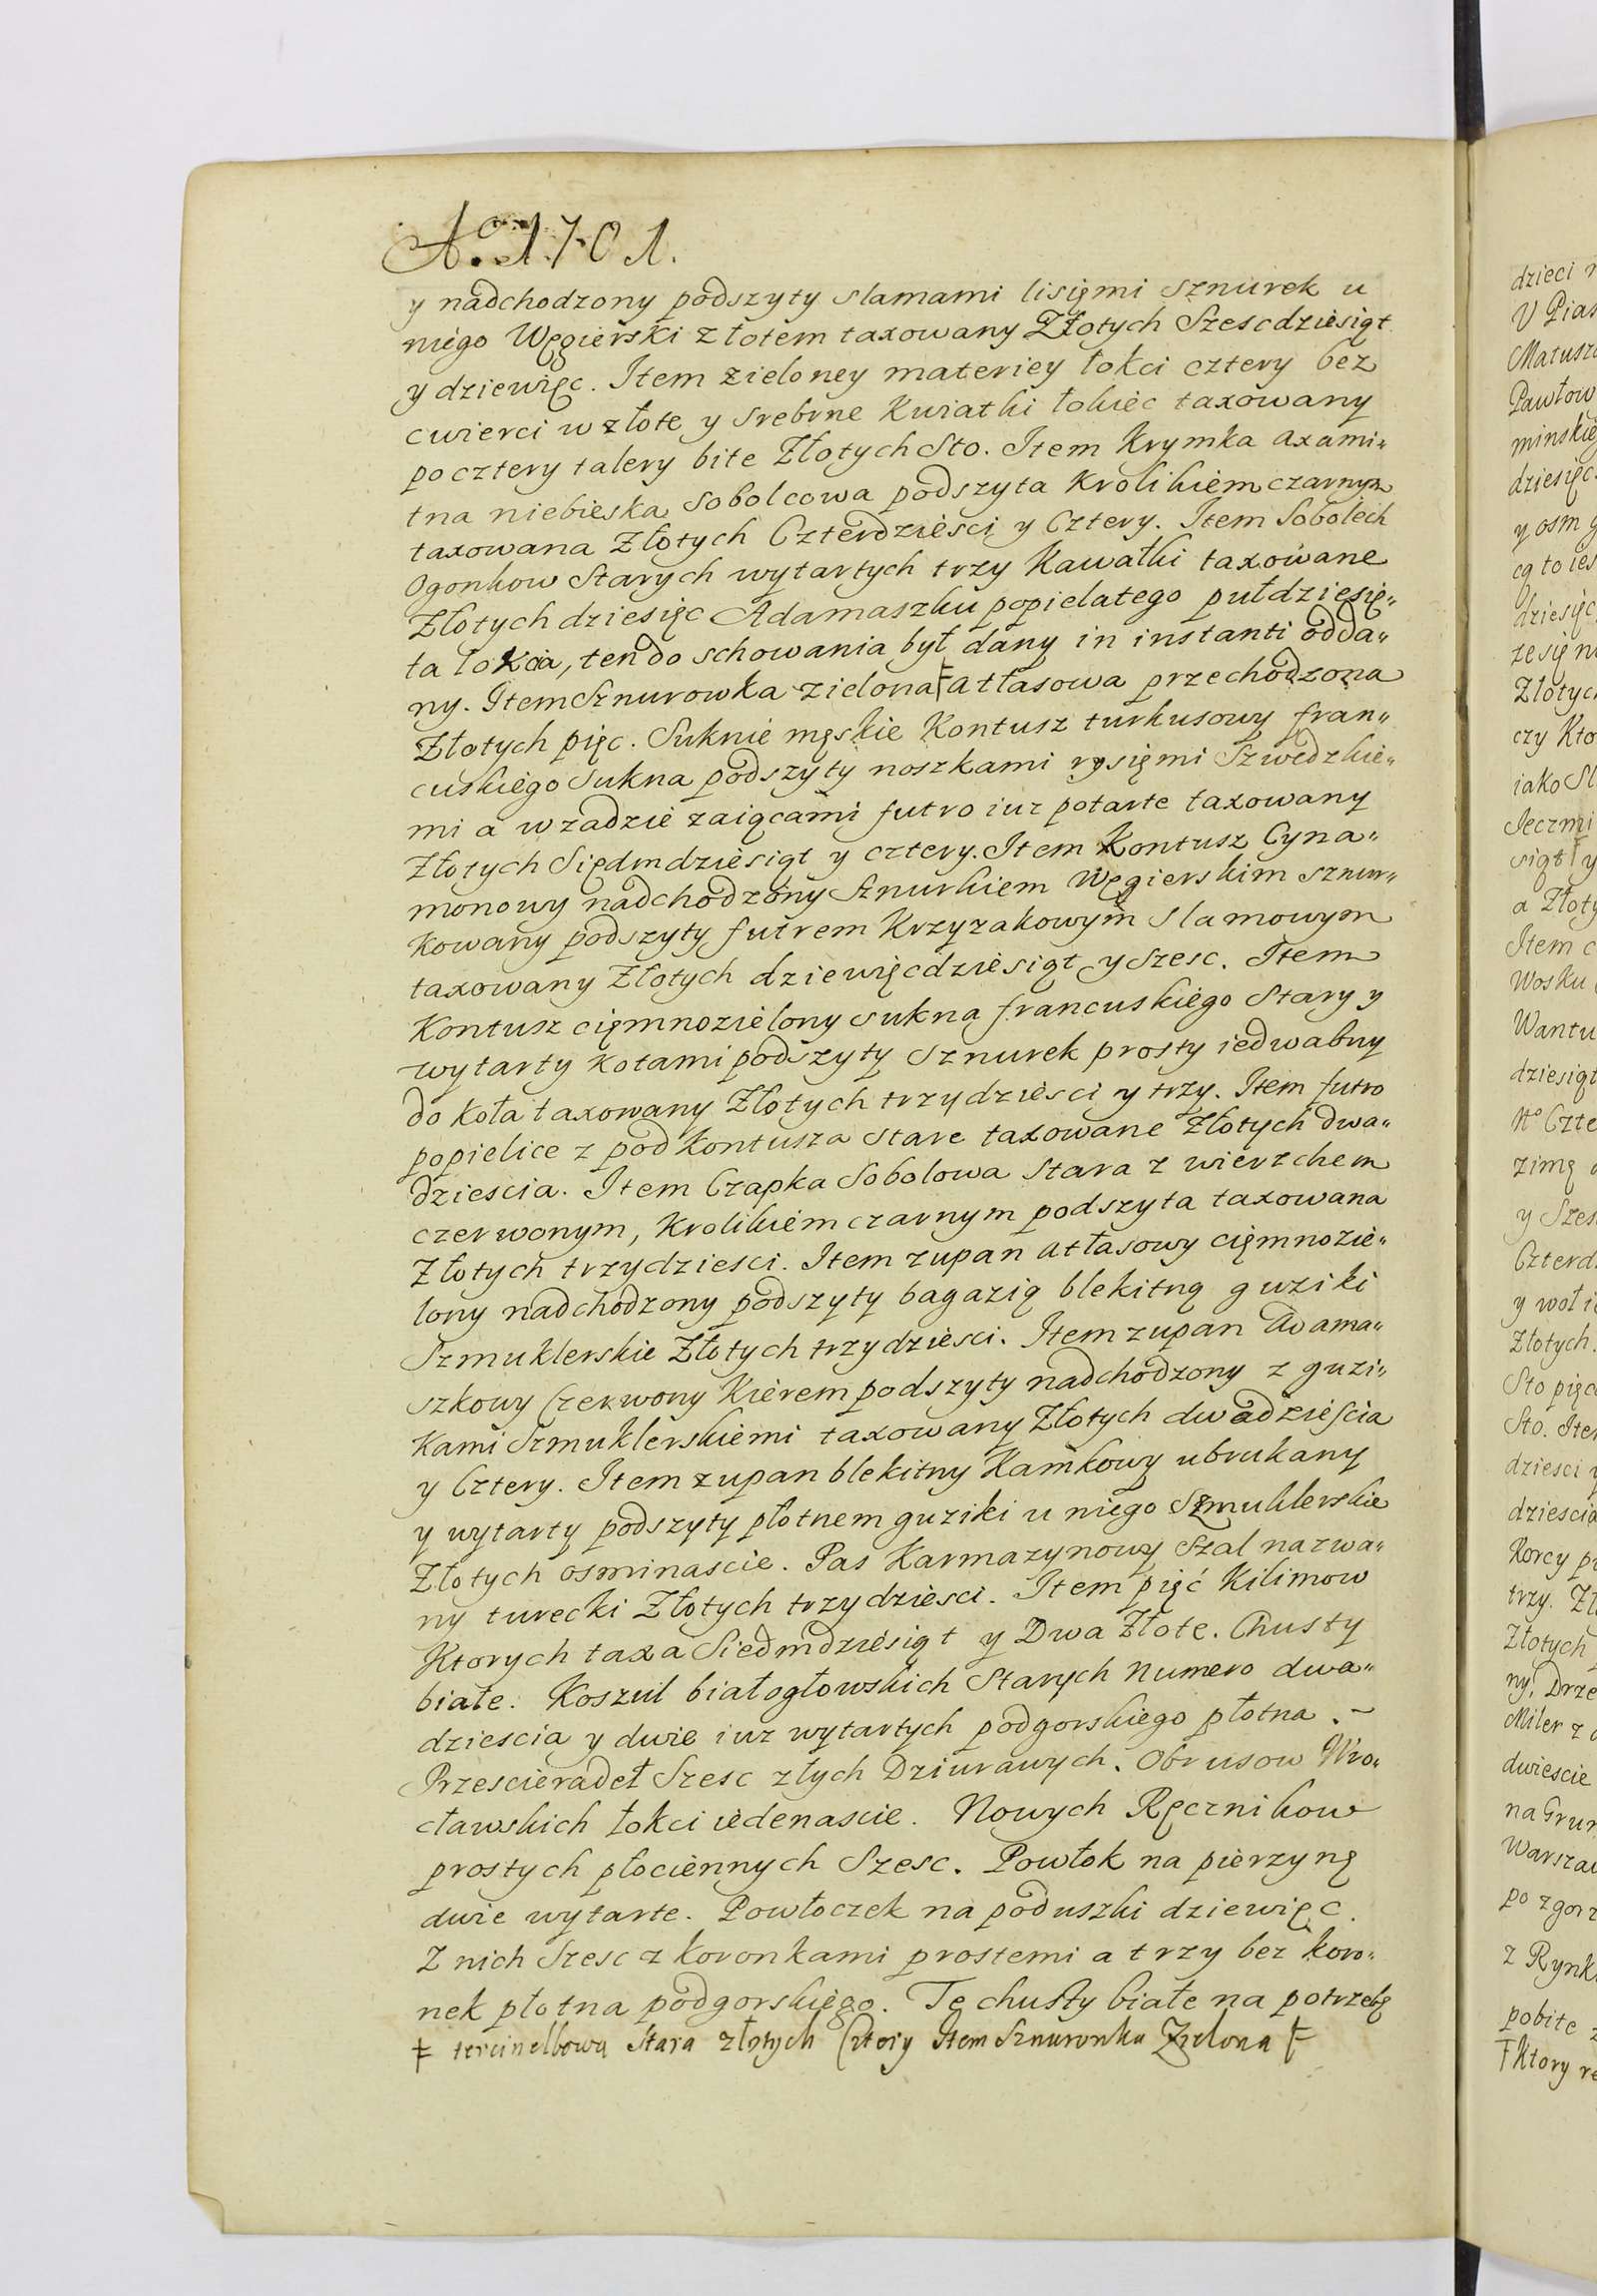 Aº. 1701.
y nadchodzony podszyty slamami lisięmi sznurek u
niego Węgierski złotem taxowany Złotych Szescdziesiąt
y dziewięc. Item zieloney materiey łokci cztery bez
cwierci w złote y srebrne Kwiatki łokiec taxowany
po cztery talery bite Złotych Sto. Item Krymka axami„
tna niebieska Sobolcowa podszyta Krolikiem czarnym
taxowana Złotych Czterdziesci y Cztery. Item Sobolech
Ogonkow Starych wytartych trzy Kawałki taxowane
Złotych dziesięc Adamaszku popielatego pułdziesię„
ta lokcia, ten do schowania był dany in instanti odda„
ny. Item Sznurowka zielona ╒ atłasowa przechodzona
Złotych pięc. Suknie męskie Kontusz turkusowy fran„
cuskiego Sukna podszyty noszkami rysięmi Szwedzkie„
mi a w zadzie zaiącami futro iuz potarte taxowany
Złotych Siędmdziesiąt y cztery. Item Kontusz Cyna„
monowy nadchodzony Sznurkiem Węgierskim sznur„
kowany podszyty futrem Krzyzakowym slamowym
taxowany Złotych dziewięcdziesiąt y szesc. Item
Kontusz cięmnozielony sukna francuskiego Stary y
wytarty kotami podszyty Sznurek prosty iedwabny
do koła taxowany Złotych trzydziesci y trzy. Item futro
popielice z pod Kontusza stare taxowane Złotych dwa„
dziescia. Item Czapka Sobolowa Stara z wierzchem
czerwonym, Krolikiem czarnym podszyta taxowana
Złotych trzydziesci. Item zupan atłasowy cięmnozie„
lony nadchodzony podszyty bagazią blekitną guziki
Szmuklerskie Złotych trzydziesci. Item zupan Adama„
szkowy Czerwony Kierem podszyty nadchodzony z guzi„
kami Szmuklerskiemi taxowany Złotych dwadziescia
y Cztery. Item zupan blekitny Kamkowy ubrukany
y wytarty podszyty płotnem guziki u niego Szmuklerskie
Złotych osminascie. Pas Karmazynowy Szal nazwa„
ny turecki Złotych trzydziesci. Item pięć Kilimow
Ktorych taxa Siedmdziesiąt y Dwa Złote. Chusty
białe. Koszul białogłowskich Starych numero dwa„
dziescia y dwie iuz wytartych podgorskiego płotna. ~
Przescieradeł Szesc złych Dziurawych. Obrusow Wro„
cławskich łokci iedenascie. Nowych Ręcznikow
prostych płociennych Szesc. Powłok na pierzynę
dwie wytarte. Powłoczek na poduszki dziewięc.
Z nich Szesc z koronkami prostemi a trzy bez koro„
nek płotna podgorskiego. Te chusty białe na potrzebę
╒ tercinelbowa Stara złotych Cztery Item Sznurowka Zielona ╒
dzieci
V Pias
Matusz
Pawłow
minskie
dziesięc
y osm
cą to ies
dziesięc
ze się
Złotych
czy Kto
iako
Ieczmi
siąt y
a Złoty
Item
Wosku
Wantu
dziesiąt
Nº Czte
zimę
y Szes
Czterd
y woł
Złotych.
Sto pięc
Sto. Item
dziesci
dziescia
Korcy
trzy.
Złotych
ny, Drze
Miler z
dwiescie
na Grun
Warszaw
po zgor
z Rynk
pobite
Ktory